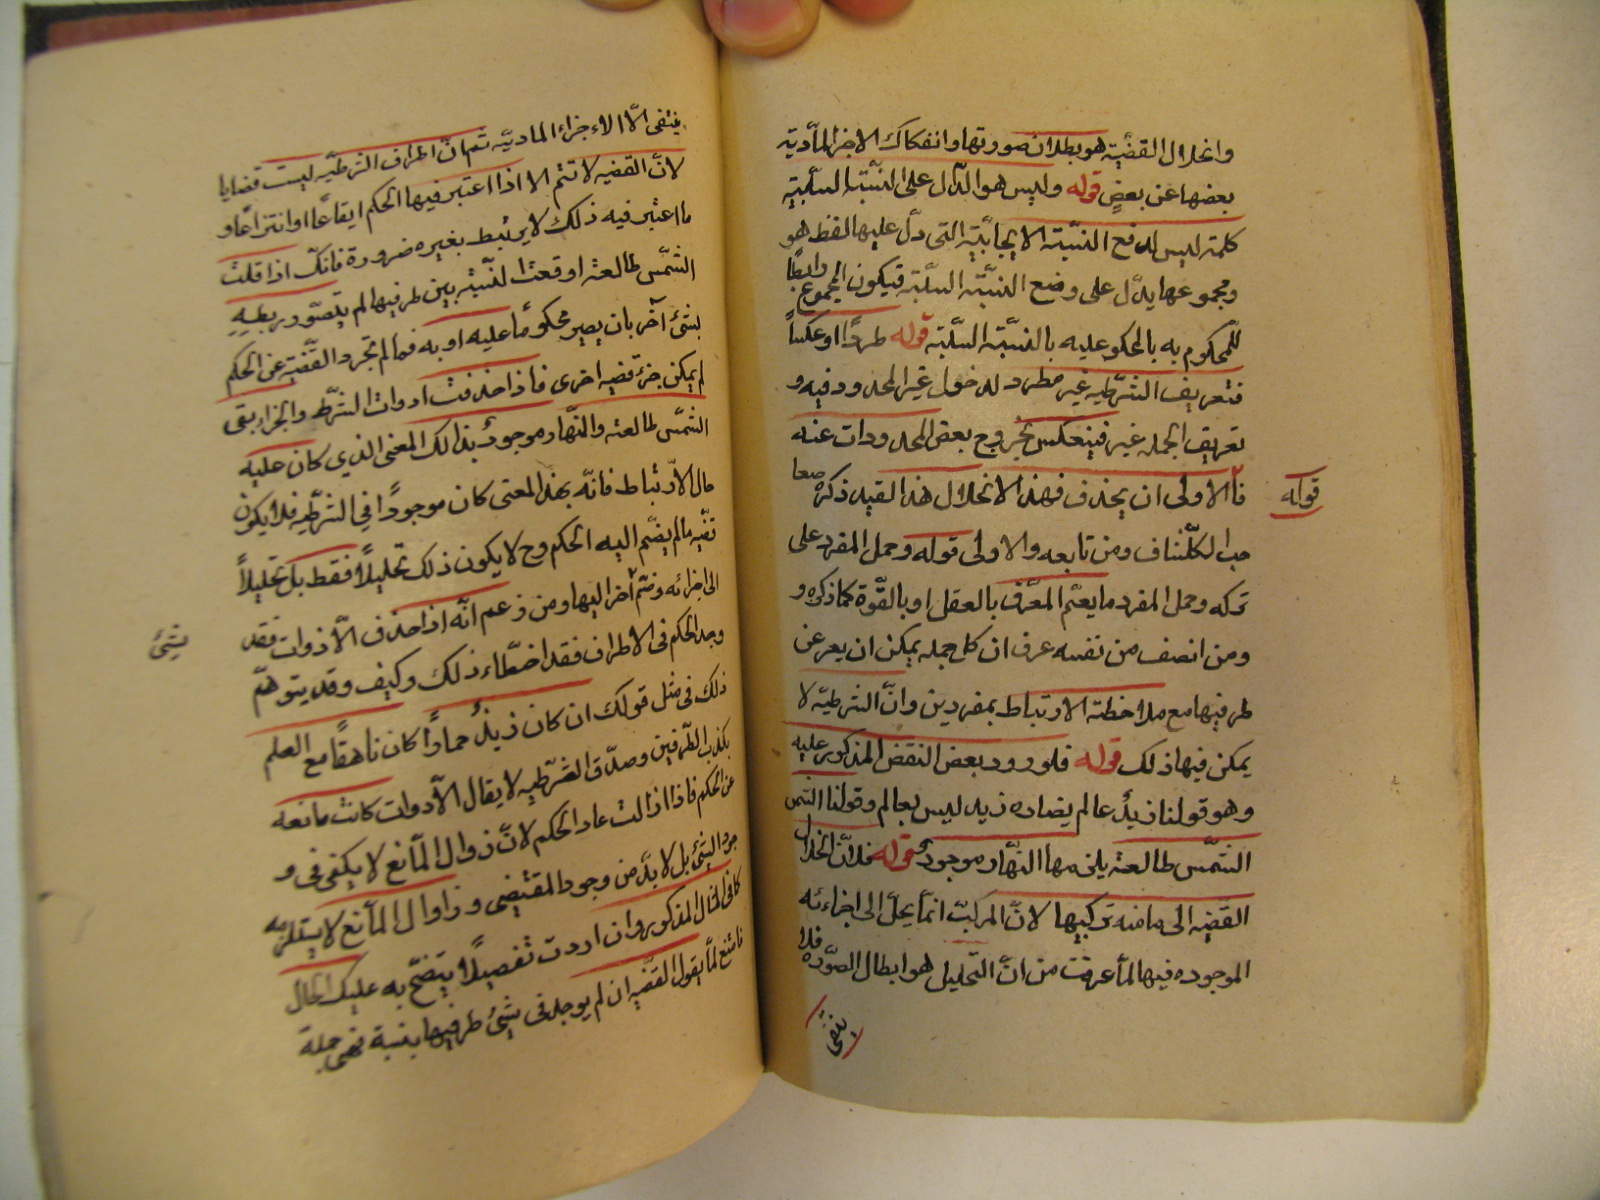 وانحلال القضية هو بطلان صورتها وانفكاك الاجزا المأدية
بعضها عن بعض قوله وليس هو الدال على النسبة السلبية
كلمة ليس لدفع النسبة الايجابية التى دل عليها لفظ هو
ومجموعها يدل على وضع النسبة السلبية فيكون المجموع رابطا
للمحكوم به بالمحكو عليه بالنسبة السلبية قوله طردا او عكسا
فتعريف الشرطيه غير مطرد لدخول غير المحدود فيه و
تعريف الحمله غير فينعكس بخروج بعض المحدودات عنه
قوله
فالاولى ان يحذف فهذا الانحلال هذا القيد ذكره
حب الكشاف ومن تابعه والاولى قوله وحمل المفرد على
تركه وحمل المفرد ما يعم المعرف بالعقل او بالقوة كما ذكره و
ومن انصف من نفسه عرف ان كل حمله يمكن ان يعر عن
طرفيها مع ملاحظة الارتباط بمفردين وان الشرطية لا
يمكن فيها ذلك قوله فلورود بعض النقض المذكور عليه
وهو قولنا زيد عالم يضاده زيد ليس بعالم وقولنا الشمس
الشمس طالعة يلزمها النهار موجود قوله فلان انحلال
القضيه الى ما منه تركيبها لان المركب انما يحل الى اجزاءه
الموجوده فيها لما عرفت من ان التحليل هو ابطال الصوره فلا
يبقى
يبقى الا الاءجزاء الماديه ثم ان اطراف الشرطيه ليست قضايا
لان القضيه لا تتم الا اذا اعتبر فيها الحكم ايقاعا او انتزاعا و
ما اعتبر فيه ذلك لا يرتبط بغيره ضرورة فانك اذا قلت
الشمس طالعة اوقعت النسبة بين طرفيها لم يتصور ربطه
بشئ آخر بان يصير محكوما عليه او به فما لم تجرد القضية عن الحكم
لم يمكن جزء قضيه اخرى فاذا حذفت ادوات الشرط والجزاء بقى
الشمس طالعة والنهار موجود بذالك المعنى الذي كان عليه
حال الارتباط فانه بهذ المعنى كان موجودا في الشرطيه فلا يكون
قضيه ما لم يضم اليه الحكم وح لا يكون ذلك تحليلا فقط بل تحليلا
الى اجزائه وضم آخر اليها ومن زعم انه اذا حذف الادوات فقد
شئ
وجد الحكم فى الاطراف فقد اخطاء ذلك وكيف وقد يتوهم
ذلك فى مثل قولك ان كان زيد حمارا كان ناهقا مع العلم
بكذب الطرفين وصدق الشرطيه لا يقال الادوات كانت مانعه
عن الحكم فاذا زالت عاد الحكم لان زوال المانع لا يكفى فى و
جود الشئ بل لا بد من وجود المقتضى و زاوال المانع لا يستلزمه
كافى الخال المذكور وان اردت تفصيلا يتضح به عليك الحال
فاستمع لما يقول القضيه ان لم يوجد فى شئ طرفيها بنسبة فهى حملة